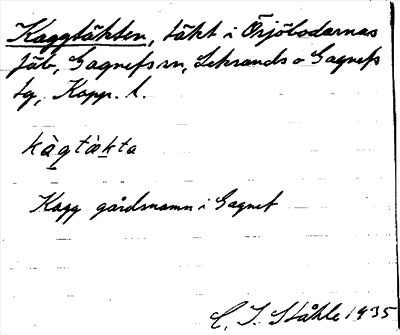 Kaggtäkten, täkt i Örjöbodarnas
fäb, Gagnefs sn, Leksands o Gagnefs
tg, Kopp. l.
kàgtækta
Kagg gårdsnamn i Gagnef
C. I. Ståhle 1935